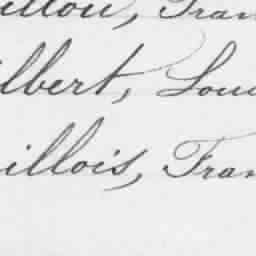 illou, Fran
lbert, Lou
illois, Fran